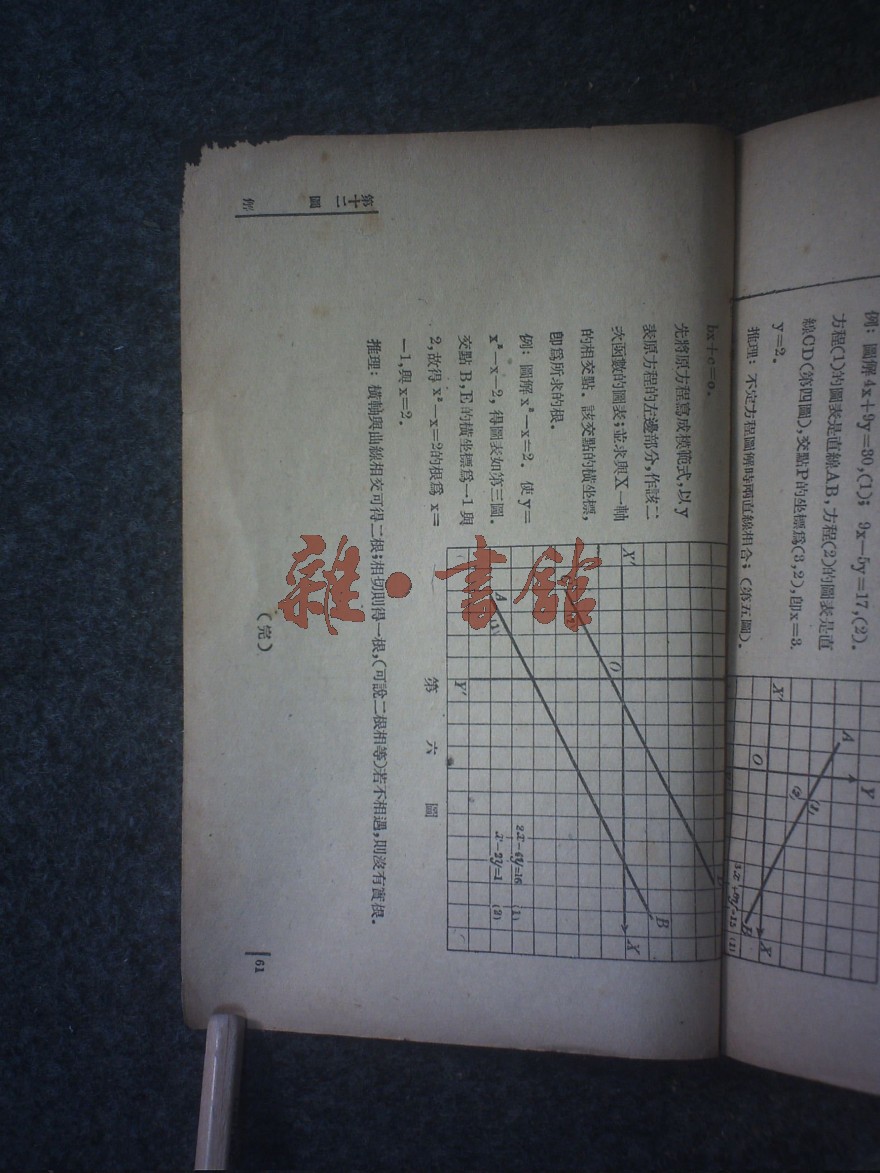 例：圖解4x+9y=30,(1)； 9x—5y=17,(2).
方程(1)的圖表是直線AB,方程(2)的圖表是直
線CD(第四圖),交點P的坐標爲(3,2),卽x=3.
y=2.
推理：不定方程圖解時兩直線相合；(第五圖).
A
Y
X'
O
(1)
(2)
B
X
bx+c=o.
先將原方程寫成模範式,以y
表原方程的左邊部分,作該二
次函數的圖表；並求與X—軸
的相交點. 該交點的橫坐標,
卽爲所求的根.
例：圖解x²—x=2. 使y=
x²—x—2, 得圖表如第三圖.
交點B,E的橫坐標爲—1與
2,故得x²—x=2的根爲x=
—1,與x=2.
X'
O
A
(1)
Y'
B
X
2x—4y=16 (1)
x—2y=1 (2)
第六圖
推理：橫軸與曲線相交可得二根；相切則得一根,(可說二根相等)若不相遇,則沒有實根.
(完)
第十二 圖解
61
雜·書館